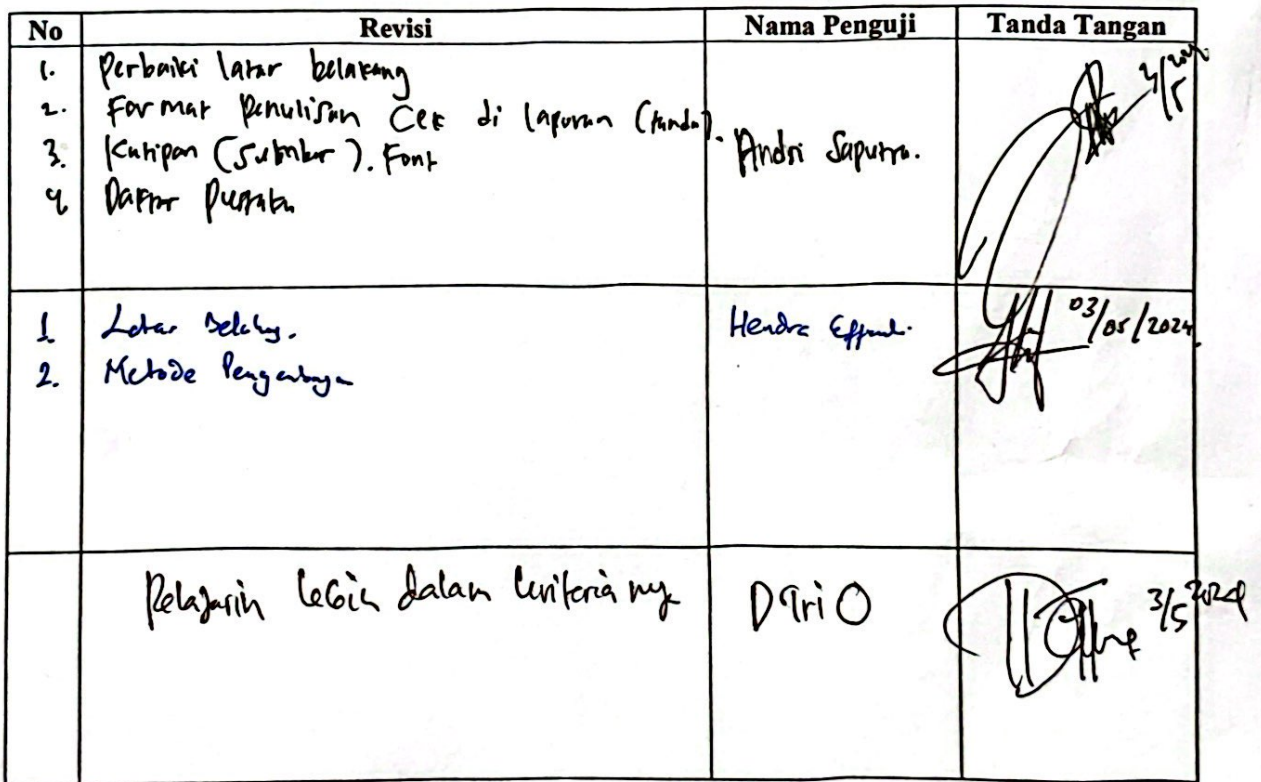 No Revisi Nama Penguji Tanda Tangan
1. Perbaiki latar belakang
2. Format Penulisan Cek di laporan (tanda).
3. Kutipan (Sumber). Font
4 Daftar Pustaka
Andri Saputra.
3/5 2024
1 Latar Belakang.
2. Metode Pengembangan
Hendra Effendi.
03/05/2024
Pelajarin lebih dalam kriteria nya
D Tri O
3/5 2024